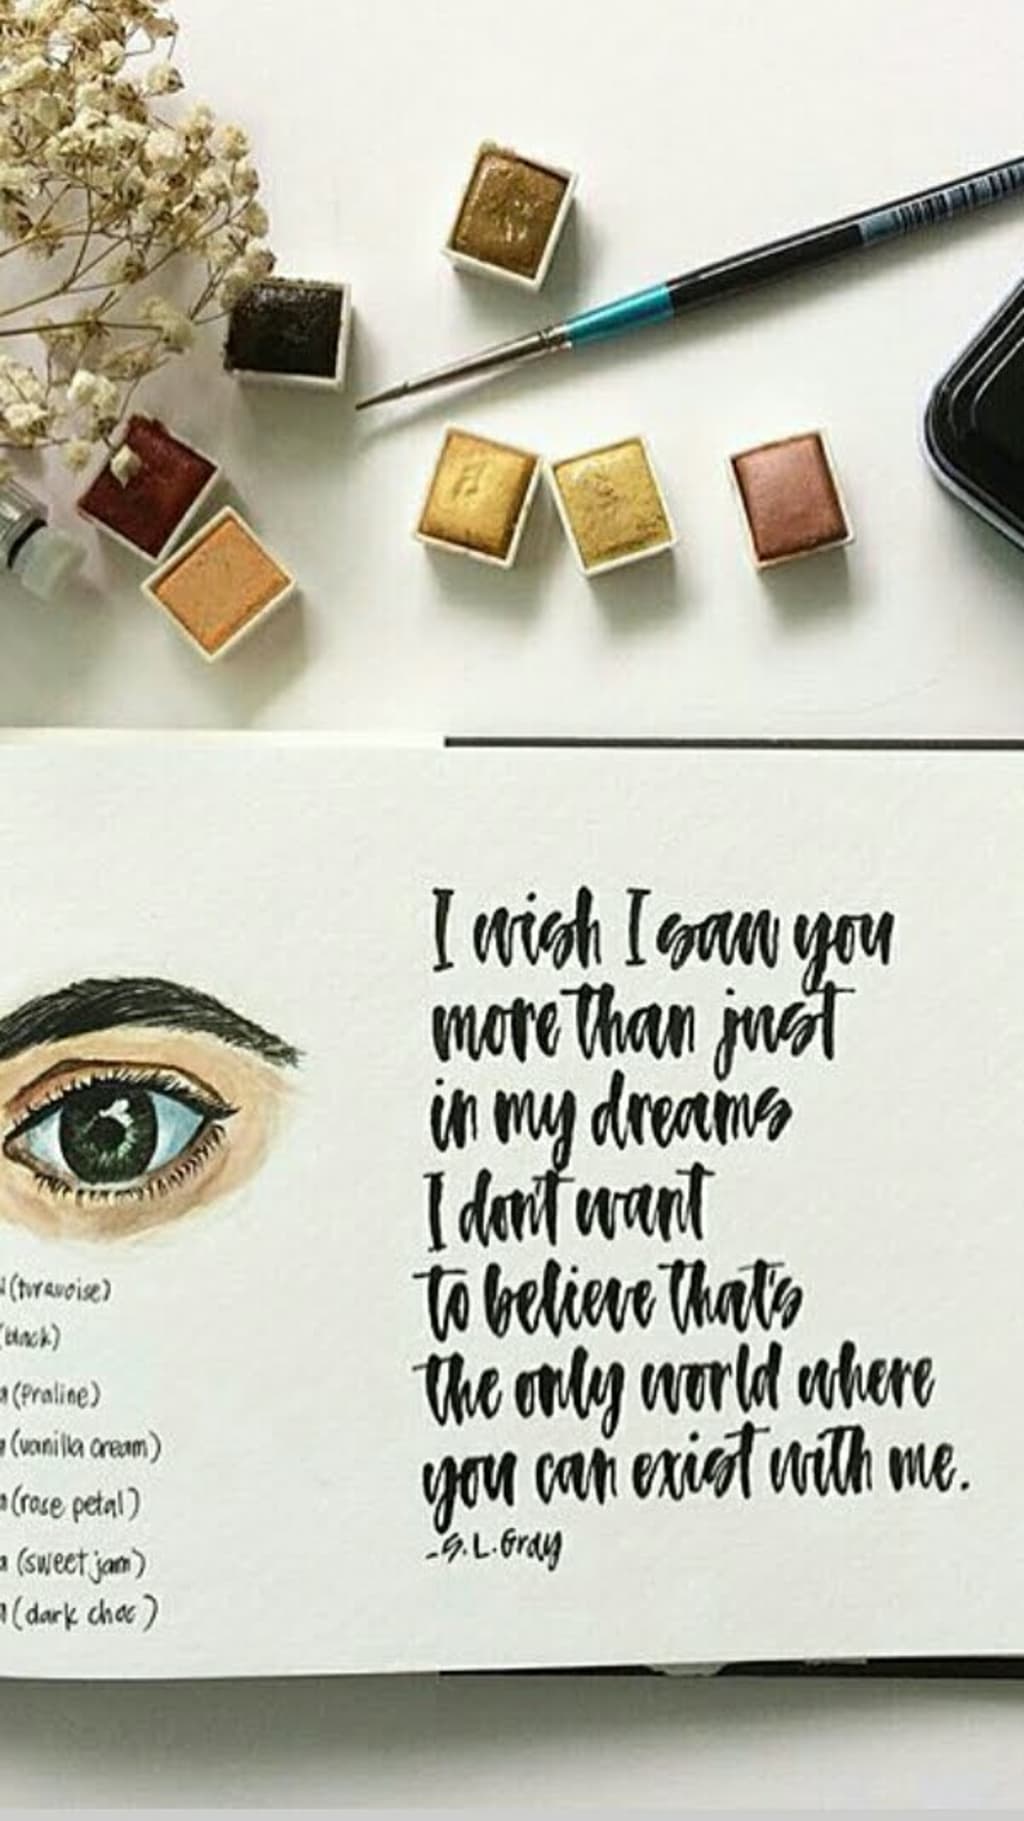 I wish I saw you
more than just
in my dreams
I don't want
to believe that's
the only world where
you can exist with me.
-S.L.Gray
(turquoise)
(black)
(Praline)
(vanilla cream)
(rose petal)
(sweet jam)
(dark choc)